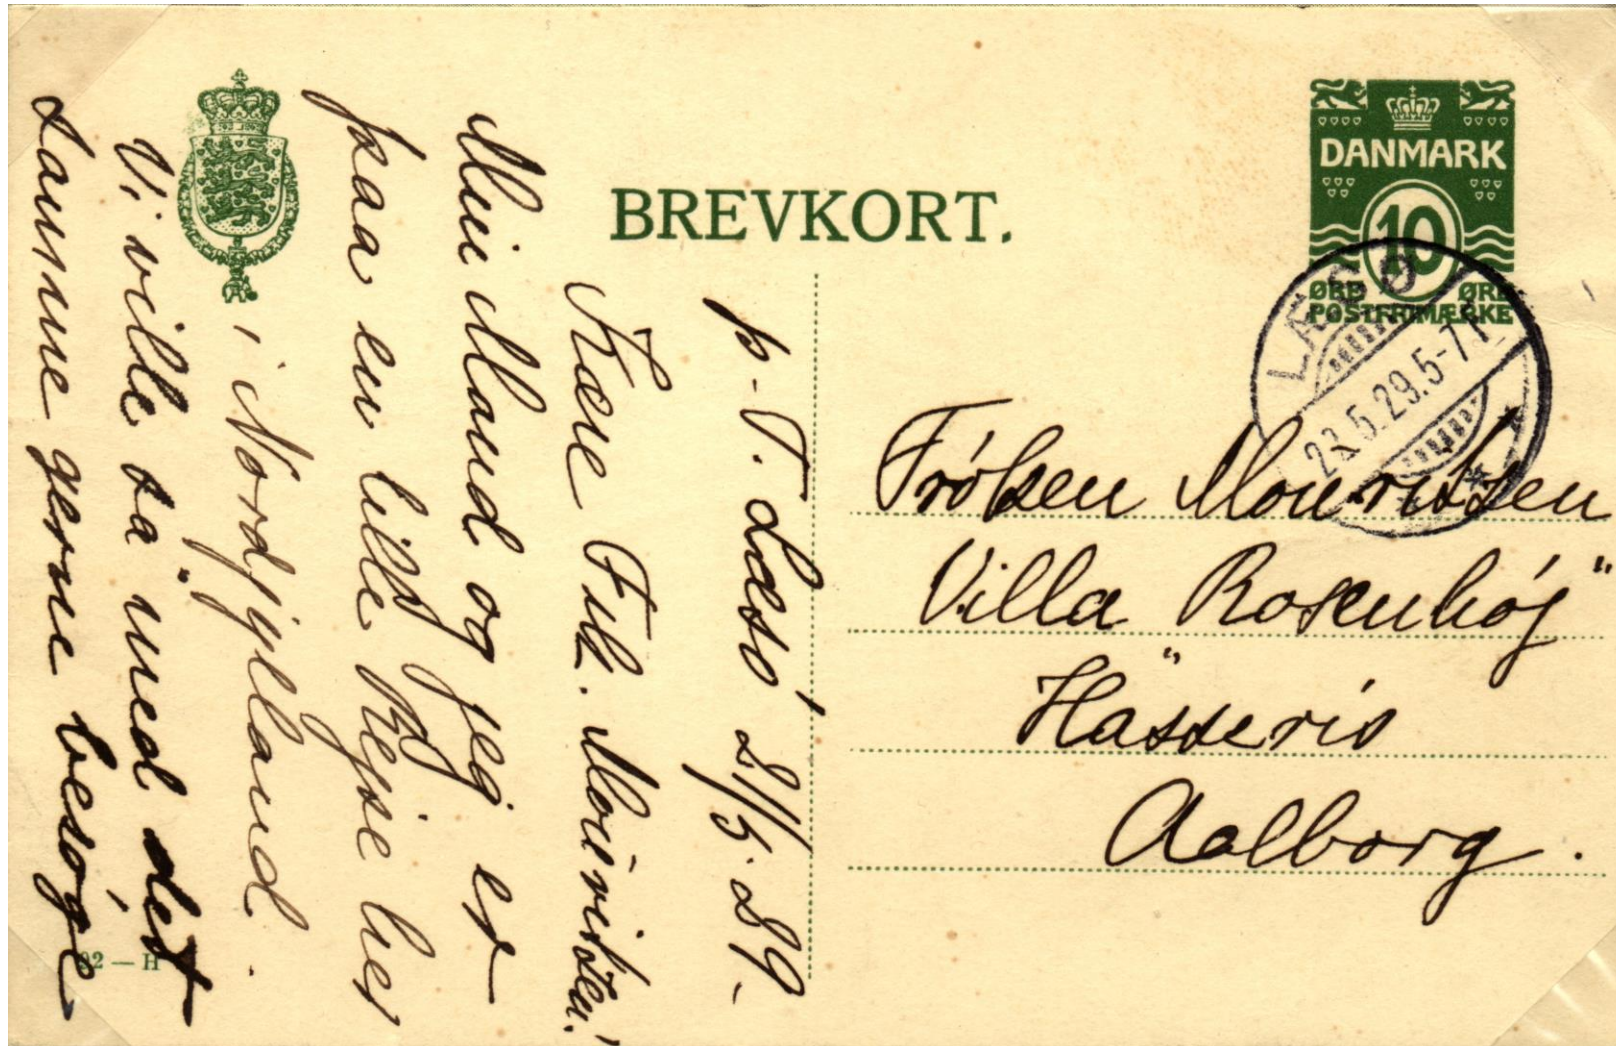 BREVKORT.
DANMARK
10
ØRE ØRE
POSTFRIMÆRKE
LÆSØ
23.5.29.5-7 F
Frøken Mouritzen
Villa "Rosenhøj"
Hasseris
Aalborg.
p. T. Læsø 21/5. 29.
Kære Frk. Mouritzen!
Min Mand og jeg er
paa en lille Rejse her
i Nordjylland.
Vi ville sa med det
samme gerne besøge
92 — H